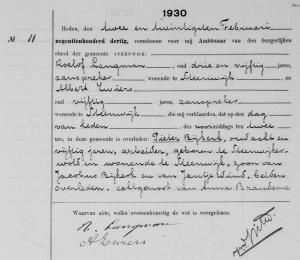 1930
No 11
Heden, den twee en twintigsten Februari
negentienhonderd dertig, verschenen voor mij Ambtenaar van den burgerlijken
stand der gemeente STEENWIJK:
Roelof Langman oud drie en vijftig jaren,
aanspreker wonende te Steenwijk en
Albert Zwiers
oud vijftig jaren, aanspreker
wonende te Steenwijk, die mij verklaarden, dat op den dag
van heden des middags te twee
ure, in deze gemeente is overleden: Pieter Bijkerk, oud acht en
vijftig jaren, arbeider, geboren te Steenwijker-
wold en wonende te Steenwijk, zoon van
Jacobus Bijkerk en van Jantje Wind, beiden
overleden, echtgenoot van Anna Brandsma
Waarvan akte, welke overeenkomstig de wet is voorgelezen.
R. Langman
A Zwiers